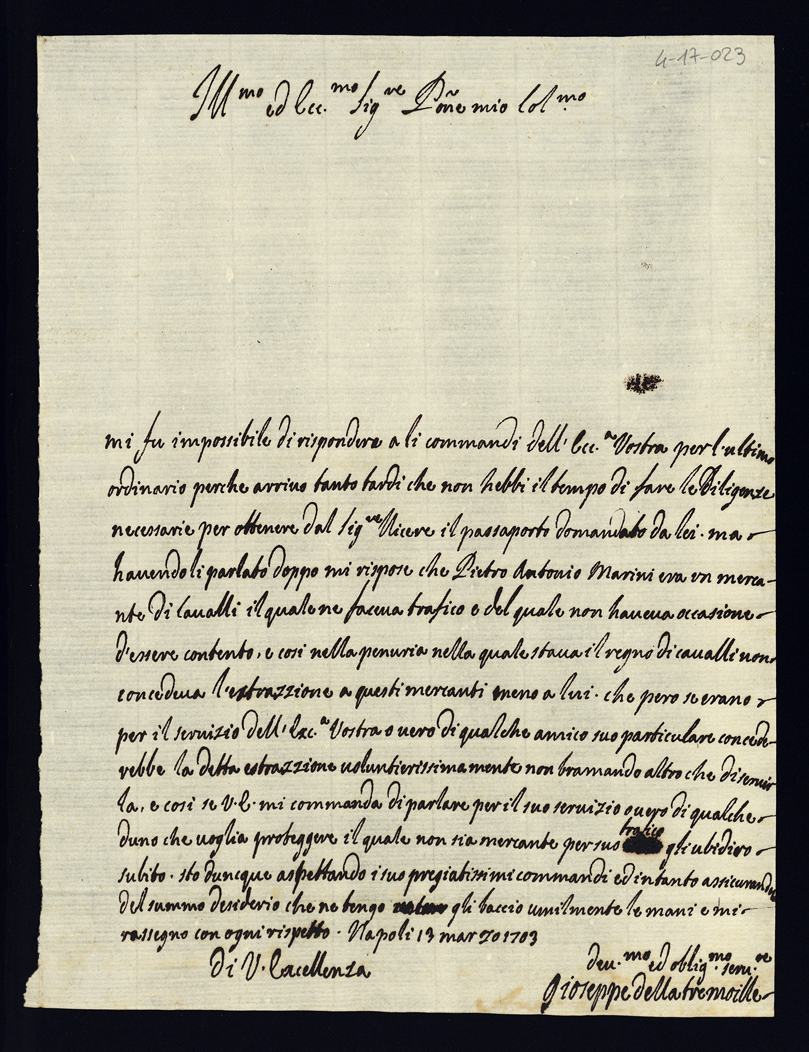 4-17-023
Ill.mo ed Ecc.mo Sig.re P̃one mio Col.mo
mi fu impossibile di rispondere a li commandi dell' Ecc.a Vostra per l'ultimo
ordinario perche arrivo tanto tardi che non hebbi il tempo di fare le Diligenze
necessarie per ottenere dal Sig.re Vicere il passaporto domandato da lei. ma
havendoli parlato doppo mi rispose che Pietro Antonio Marini era un merca-
nte di Cavalli il quale ne faceva trafico e del quale non haveva occasione
d'essere contento, e cosi nella penuria nella quale stava il regno di cavalli non
concedeva l'estrazzione a questi mercanti meno a lui. che pero se erano
per il servizio dell' Exc.a Vostra o vero di qualche amico suo particulare concede-
rebbe la detta estrazzione voluntierissimamente non bramando altro che di servir
la, e cosi se V.E. mi commanda di parlare per il suo servizio overo di qualche
duno che voglia proteggere il quale non sia mercante per suo trafico gli ubidiro
subito. sto duncque aspettando i suo pregiatissimi commandi ed intanto assicurandola
del summo desiderio che ne tengo gli baccio umilmente le mani e mi
rassegno con ogni rispetto. Napoli 13 marzo 1703
di V. Excellenza
dev.mo ed oblig.mo serv.re
Gioseppe della tremoille